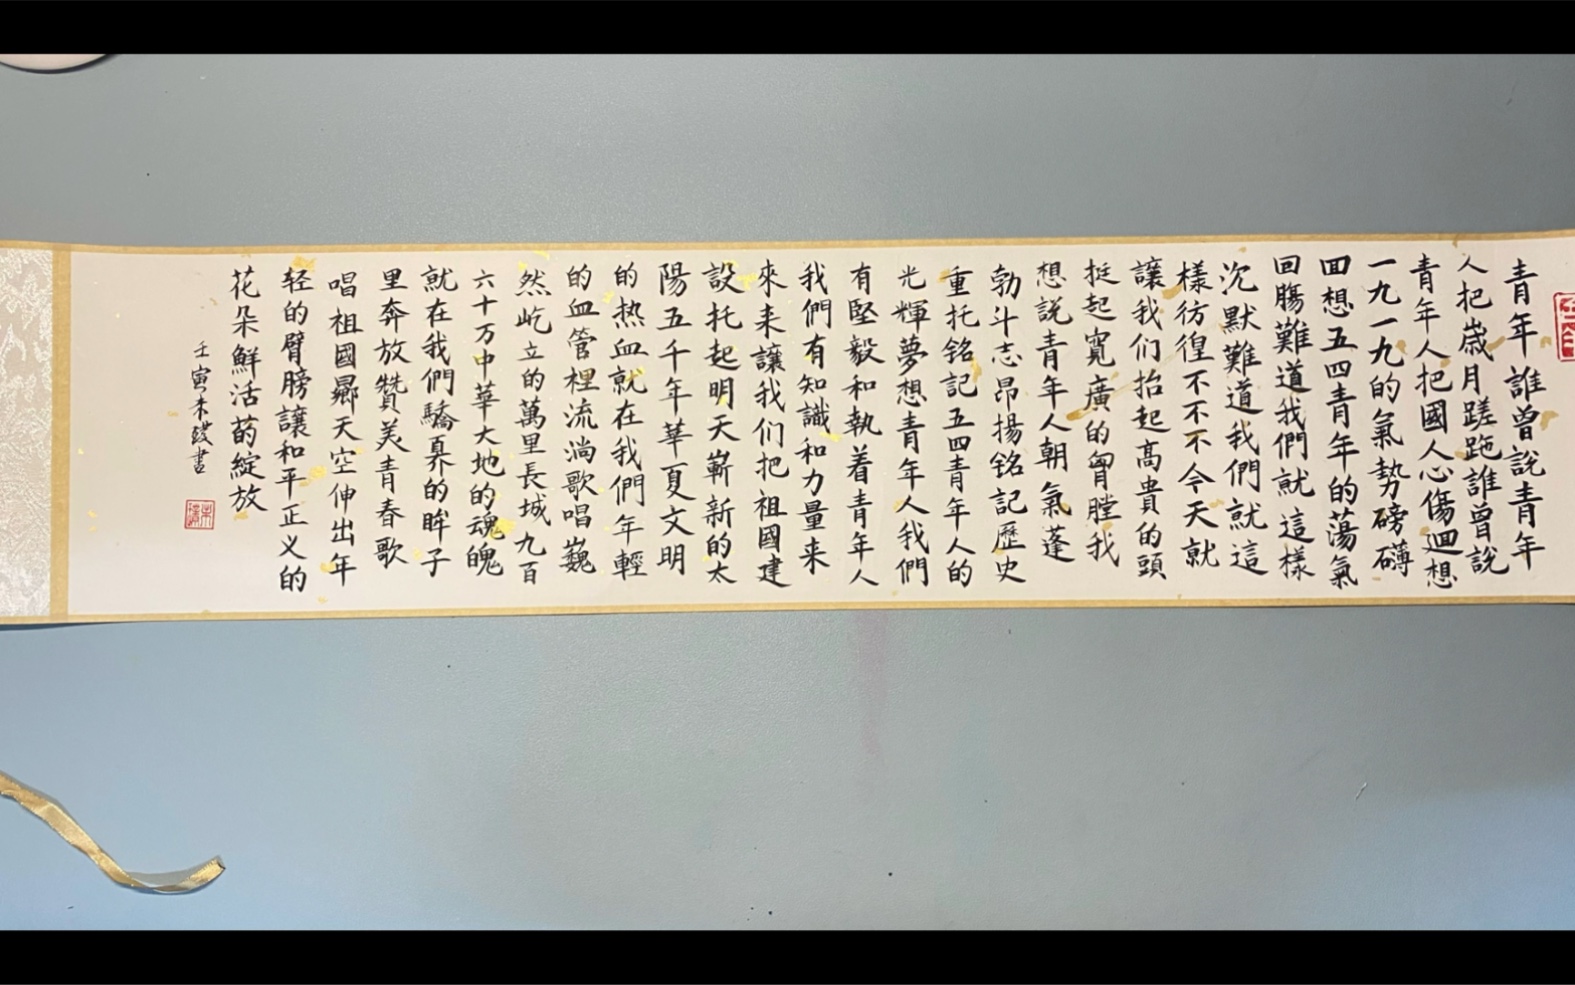 青年誰曾說青年
人把歲月蹉跎誰曾說
青年人把國人心傷迴想
一九一九的氣勢磅礴
回想五四青年的蕩氣
回腸難道我們就這樣
沉默難道我們就這
樣彷徨不不不今天就
讓我们抬起高貴的頭
挺起寬廣的胷膛我
想說青年人朝氣蓬
勃斗志昂揚铭記歷史
重托铭記五四青年人的
光輝夢想青年人我們
有堅毅和執着青年人
我們有知識和力量来
來来讓我们把祖國建
設托起明天嶄新的太
陽五千年華夏文明
的热血就在我們年輕
的血管梩流淌歌唱巍
然屹立的萬里長城九百
六十万中華大地的魂魄
就在我們驕奡的眸子
里奔放赞美青春歌
唱祖國鼏天空伸出年
轻的臂膀讓和平正义的
花朵鮮活的綻放
壬寅禾書